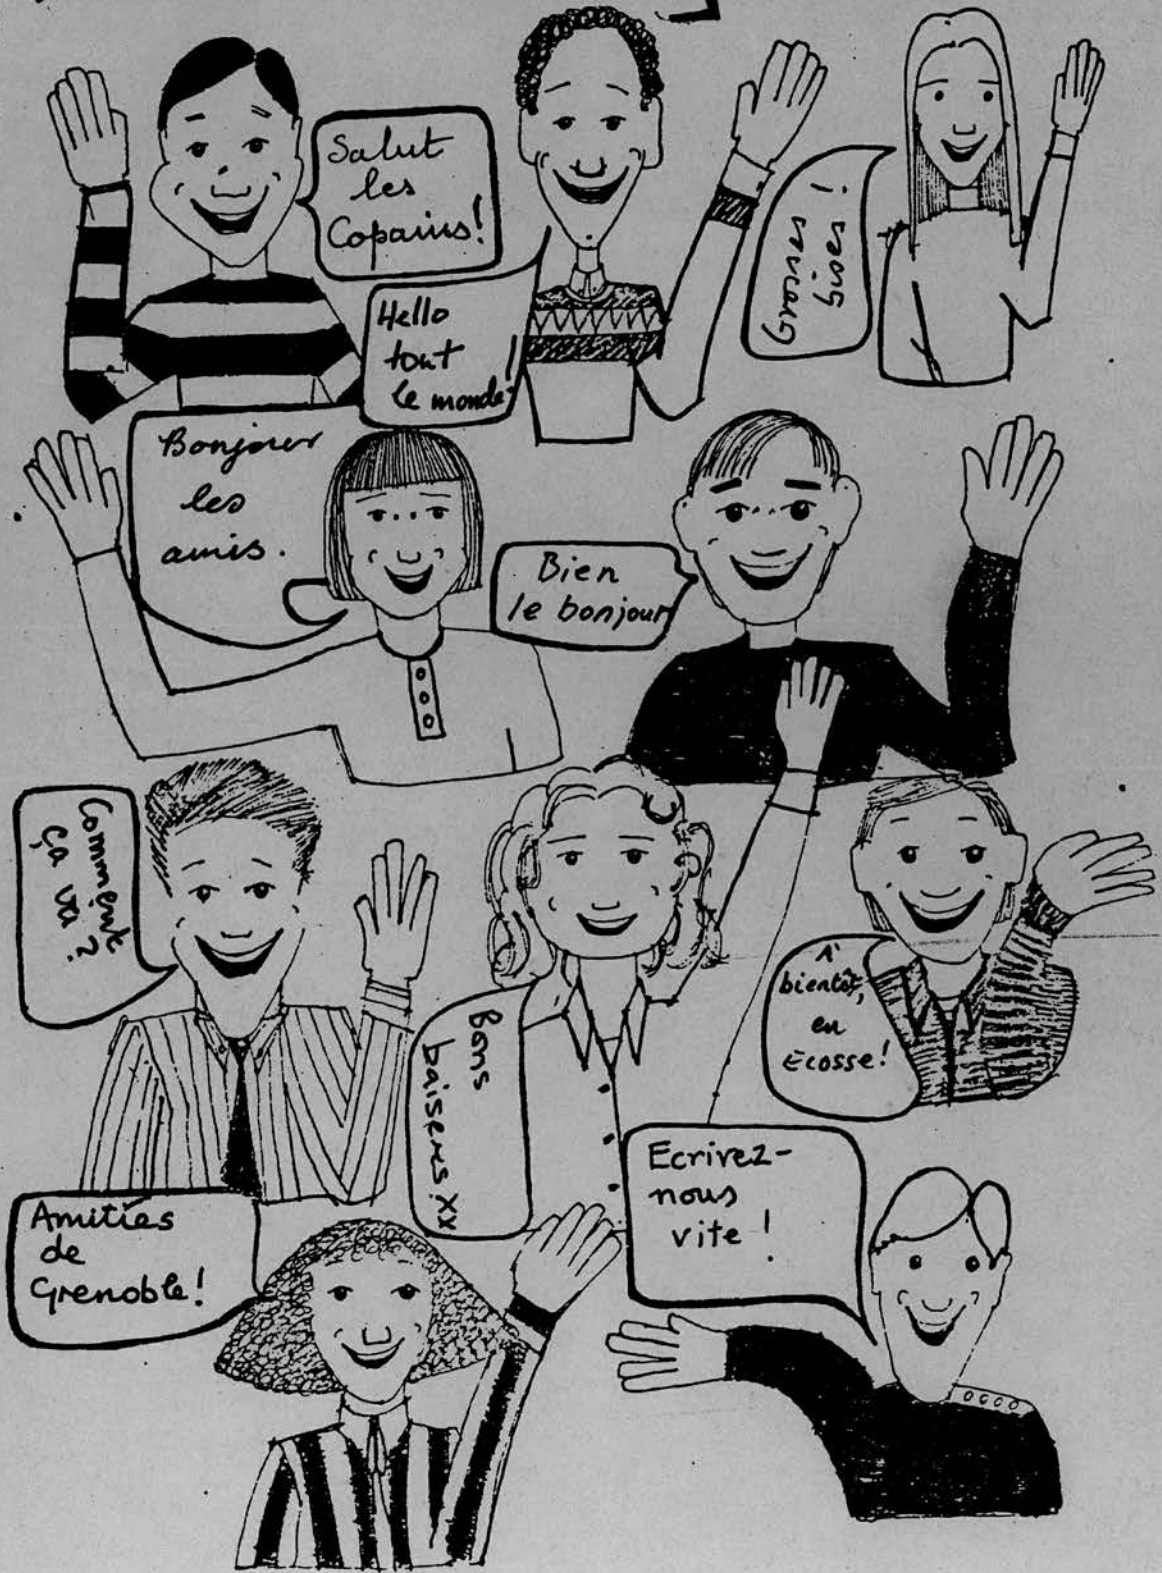 Salut
les
Copains!
Hello
tout
le monde!
Grosses
bises !
Bonjour
les
amis.
Bien
le bonjour
Comment
ça va ?
Bons
baisers XX
À
bientôt,
en
Ecosse!
Amitiés
de
Grenoble!
Ecrivez-
nous
vite !